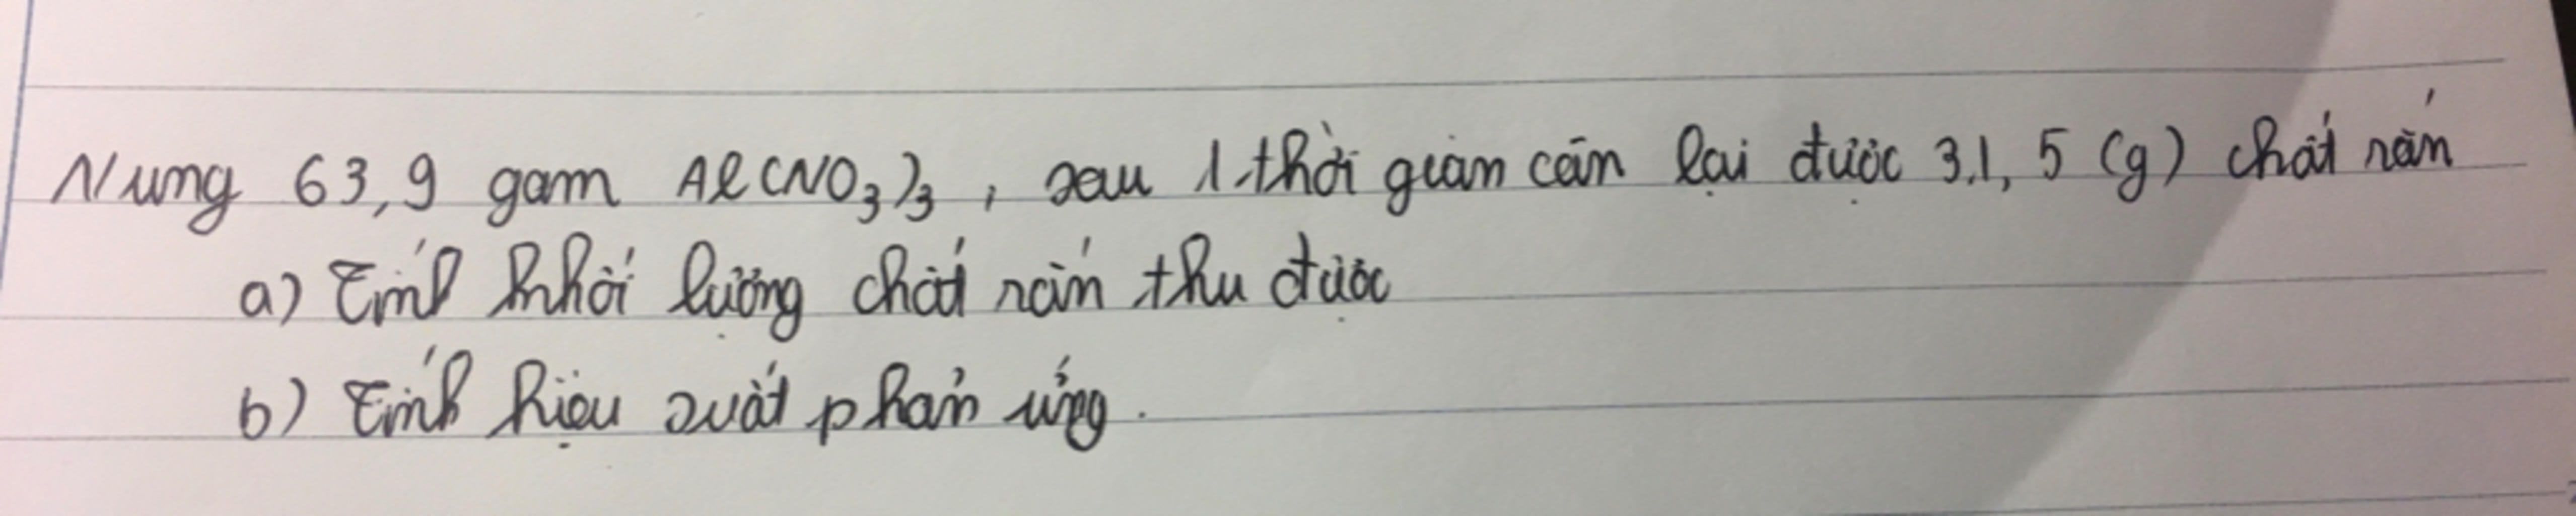 Nung 63,9 gam Al(NO3)3, sau 1 thời gian cân lại được 31,5 (g) chất rắn
a) Tính khối lượng chất rắn thu được
b) Tính hiệu suất phản ứng.